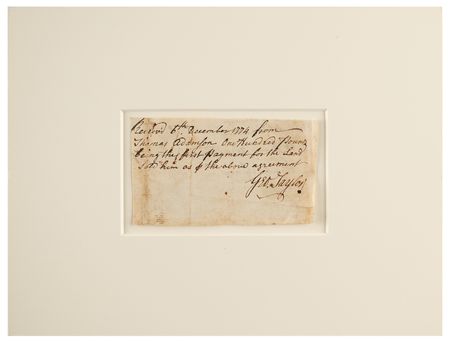 Received 6th December 1774 from
Thomas Adamson One Hundred Pounds
being the first Payment for the Land
Sold him as the above agreement
Geo. Taylor